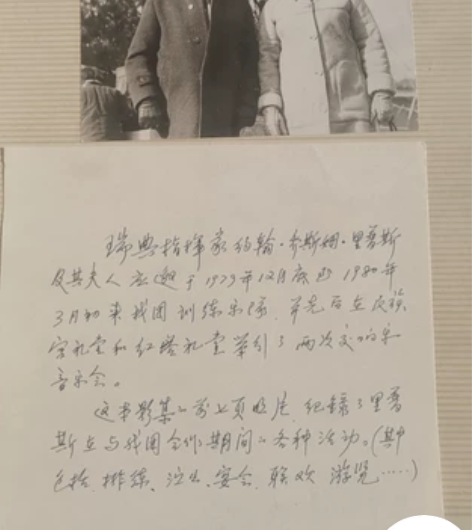 瑞典指挥家约翰·乔斯姆·里普斯
及其夫人应邀于1979年12月底到1980年
3月初来我团训练乐队,并先后在民族
宫礼堂和红塔礼堂举行了两次交响乐
音乐会。
这本影集的前上页照片,纪录了里普
斯在与我团合作期间的各种活动。(其中
包括排练、演出、宴会、联欢、游览……)